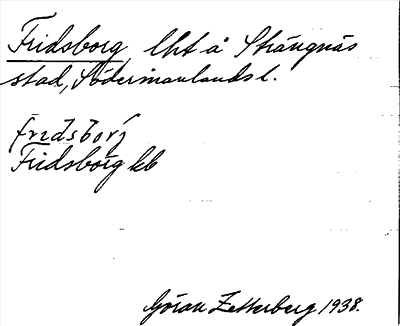 Fridsborg, lht å Strängnäs
stad, Södermanlands l.
fredsborj
Fridsborg kb
Göran Zetterberg 1938.